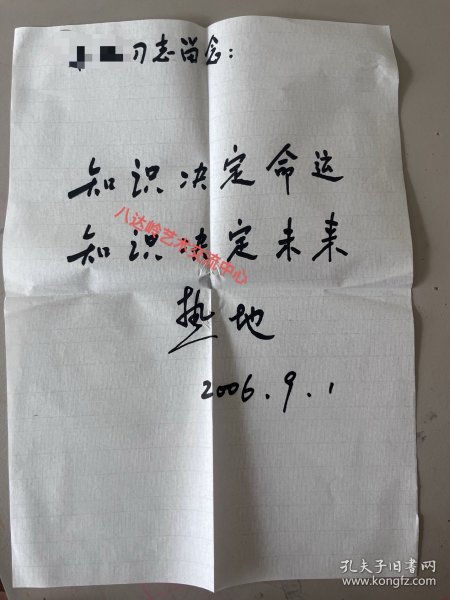 同志留念：
知识决定命运
知识决定未来
热地
2006.9.1
八达岭艺术交流中心
孔夫子旧书网
www.kongfz.com